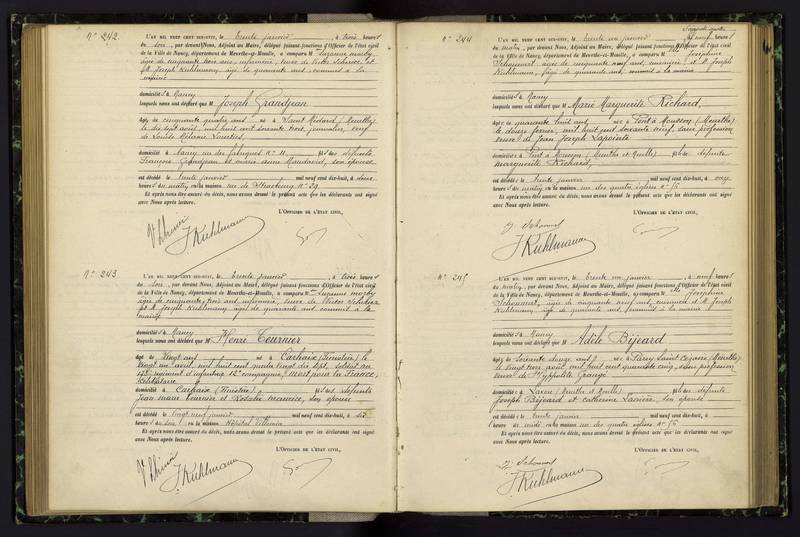 N° 242.
L'AN MIL NEUF CENT DIX-HUIT, le trente janvier, à trois heures
du soir, par devant Nous, Adjoint au Maire, délégué faisant fonctions d'Officier de l'état civil
de la Ville de Nancy, département de Meurthe-et-Moselle, a comparu M
âgée de cinquante trois ans, infirmière, veuve de Victor et
M. Joseph Kuhlmann, âgé de quarante ans, commis à la
mairie
domiciliés à Nancy
lesquels nous ont déclaré que M Joseph Grandjean
âgé de cinquante quatre ans né à Saint Médard (Meurthe)
le dix sept août, mil huit cent soixante trois, journalier, veuf
de Louise Mélanie
domicilié à Nancy, rue des fabriques n° 11, fils des défunts
François Grandjean et Marie Anne son épouse
est décédé le trente janvier mil neuf cent dix-huit, à
heures du matin en la maison rue de Strasbourg n° 29.
Et après nous être assuré du décès, nous avons dressé le présent acte que les déclarants ont signé
avec Nous après lecture.
L'OFFICIER DE L'ÉTAT CIVIL,
J. Kuhlmann
N° 243
L'AN MIL NEUF CENT DIX-HUIT, le trente janvier, à trois heures
du soir, par devant Nous, Adjoint au Maire, délégué faisant fonctions d'Officier de l'état civil
de la Ville de Nancy, département de Meurthe-et-Moselle, a comparu M
âgée de cinquante trois ans, infirmière, veuve de Victor
et M. Joseph Kuhlmann, âgé de quarante ans commis à la
mairie
domiciliés à Nancy
lesquels nous ont déclaré que M Henri Tournier
âgé de vingt ans né à Carhaix (Finistère) le
vingt un avril, mil huit cent quatre vingt dix sept, soldat au
régiment d'infanterie, 12e compagnie, Mort pour la France,
Célibataire
domicilié à Carhaix (Finistère) fils des défunts
Jean Marie Tournier et Rosalie son épouse
est décédé le vingt neuf janvier mil neuf cent dix-huit, à
heures du soir en la maison Hôpital Villemin
Et après nous être assuré du décès, nous avons dressé le présent acte que les déclarants ont signé
avec Nous après lecture.
L'OFFICIER DE L'ÉTAT CIVIL,
J. Kuhlmann
N° 244
L'AN MIL NEUF CENT DIX-HUIT, le trente un janvier, à neuf heures
du matin, par devant Nous, Adjoint au Maire, délégué faisant fonctions d'Officier de l'état civil
de la Ville de Nancy, département de Meurthe-et-Moselle, a comparu Mlle Joséphine
âgée de cinquante neuf ans, et M. Joseph
Kuhlmann, âgé de quarante ans, commis à la mairie
domiciliés à Nancy
lesquels nous ont déclaré que M Marie Marguerite Richard,
âgée de quarante huit ans née à Pont à Mousson (Meurthe)
le douze février, mil huit cent soixante neuf, sans profession
veuve de Jean Joseph Lapointe
domiciliée à Pont à Mousson (Meurthe et Moselle) fille de défunte
Marguerite Richard,
est décédée le trente janvier mil neuf cent dix-huit, à onze
heures du matin en la maison rue des quatre églises n°
Et après nous être assuré du décès, nous avons dressé le présent acte que les déclarants ont signé
avec Nous après lecture.
L'OFFICIER DE L'ÉTAT CIVIL,
J. Kuhlmann
N° 245
L'AN MIL NEUF CENT DIX-HUIT, le trente un janvier, à neuf heures
du matin, par devant Nous, Adjoint au Maire, délégué faisant fonctions d'Officier de l'état civil
de la Ville de Nancy, département de Meurthe-et-Moselle, a comparu Mlle Joséphine
âgée de cinquante neuf ans, et M. Joseph
Kuhlmann, âgé de quarante ans, commis à la mairie
domiciliés à Nancy
lesquels nous ont déclaré que M Adèle Bijeard
âgée de soixante douze ans née à Parey Saint Césaire (Meurthe)
le vingt trois août mil huit cent quarante cinq, sans profession
veuve de Hyppolite Grange
domiciliée à Laxou (Meurthe et Moselle) fille des défunts
Joseph Bijeard et Catherine son épouse
est décédée le trente janvier mil neuf cent dix-huit, à
heure de midi en la maison rue des quatre églises n°
Et après nous être assuré du décès, nous avons dressé le présent acte que les déclarants ont signé
avec Nous après lecture.
L'OFFICIER DE L'ÉTAT CIVIL,
J. Kuhlmann